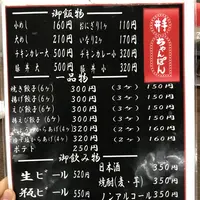 御飯物
小めし 160円 おにぎり1ヶ 110円
大めし 210円 いなり2ヶ 170円
チキンカレー大 500円 チキンカレー小 320円
豚丼大 500円 豚丼小 320円
品物
焼き餃子(6ヶ) 300円 (3ヶ) 150円
揚げ餃子(6ヶ) 300円 (3ヶ) 150円
えび餃子(6ヶ) 300円 (3ヶ) 150円
からあげ(4ヶ) 320円 (2ヶ) 160円
からあげ(4ヶ) 320円 (2ヶ) 160円
ポテト 250円
御飲み物
生ビール 520円
瓶ビール 550円
日本酒 350円
焼酎(麦・芋) 350円
ノンアルコール 350円
ちゃんぽん